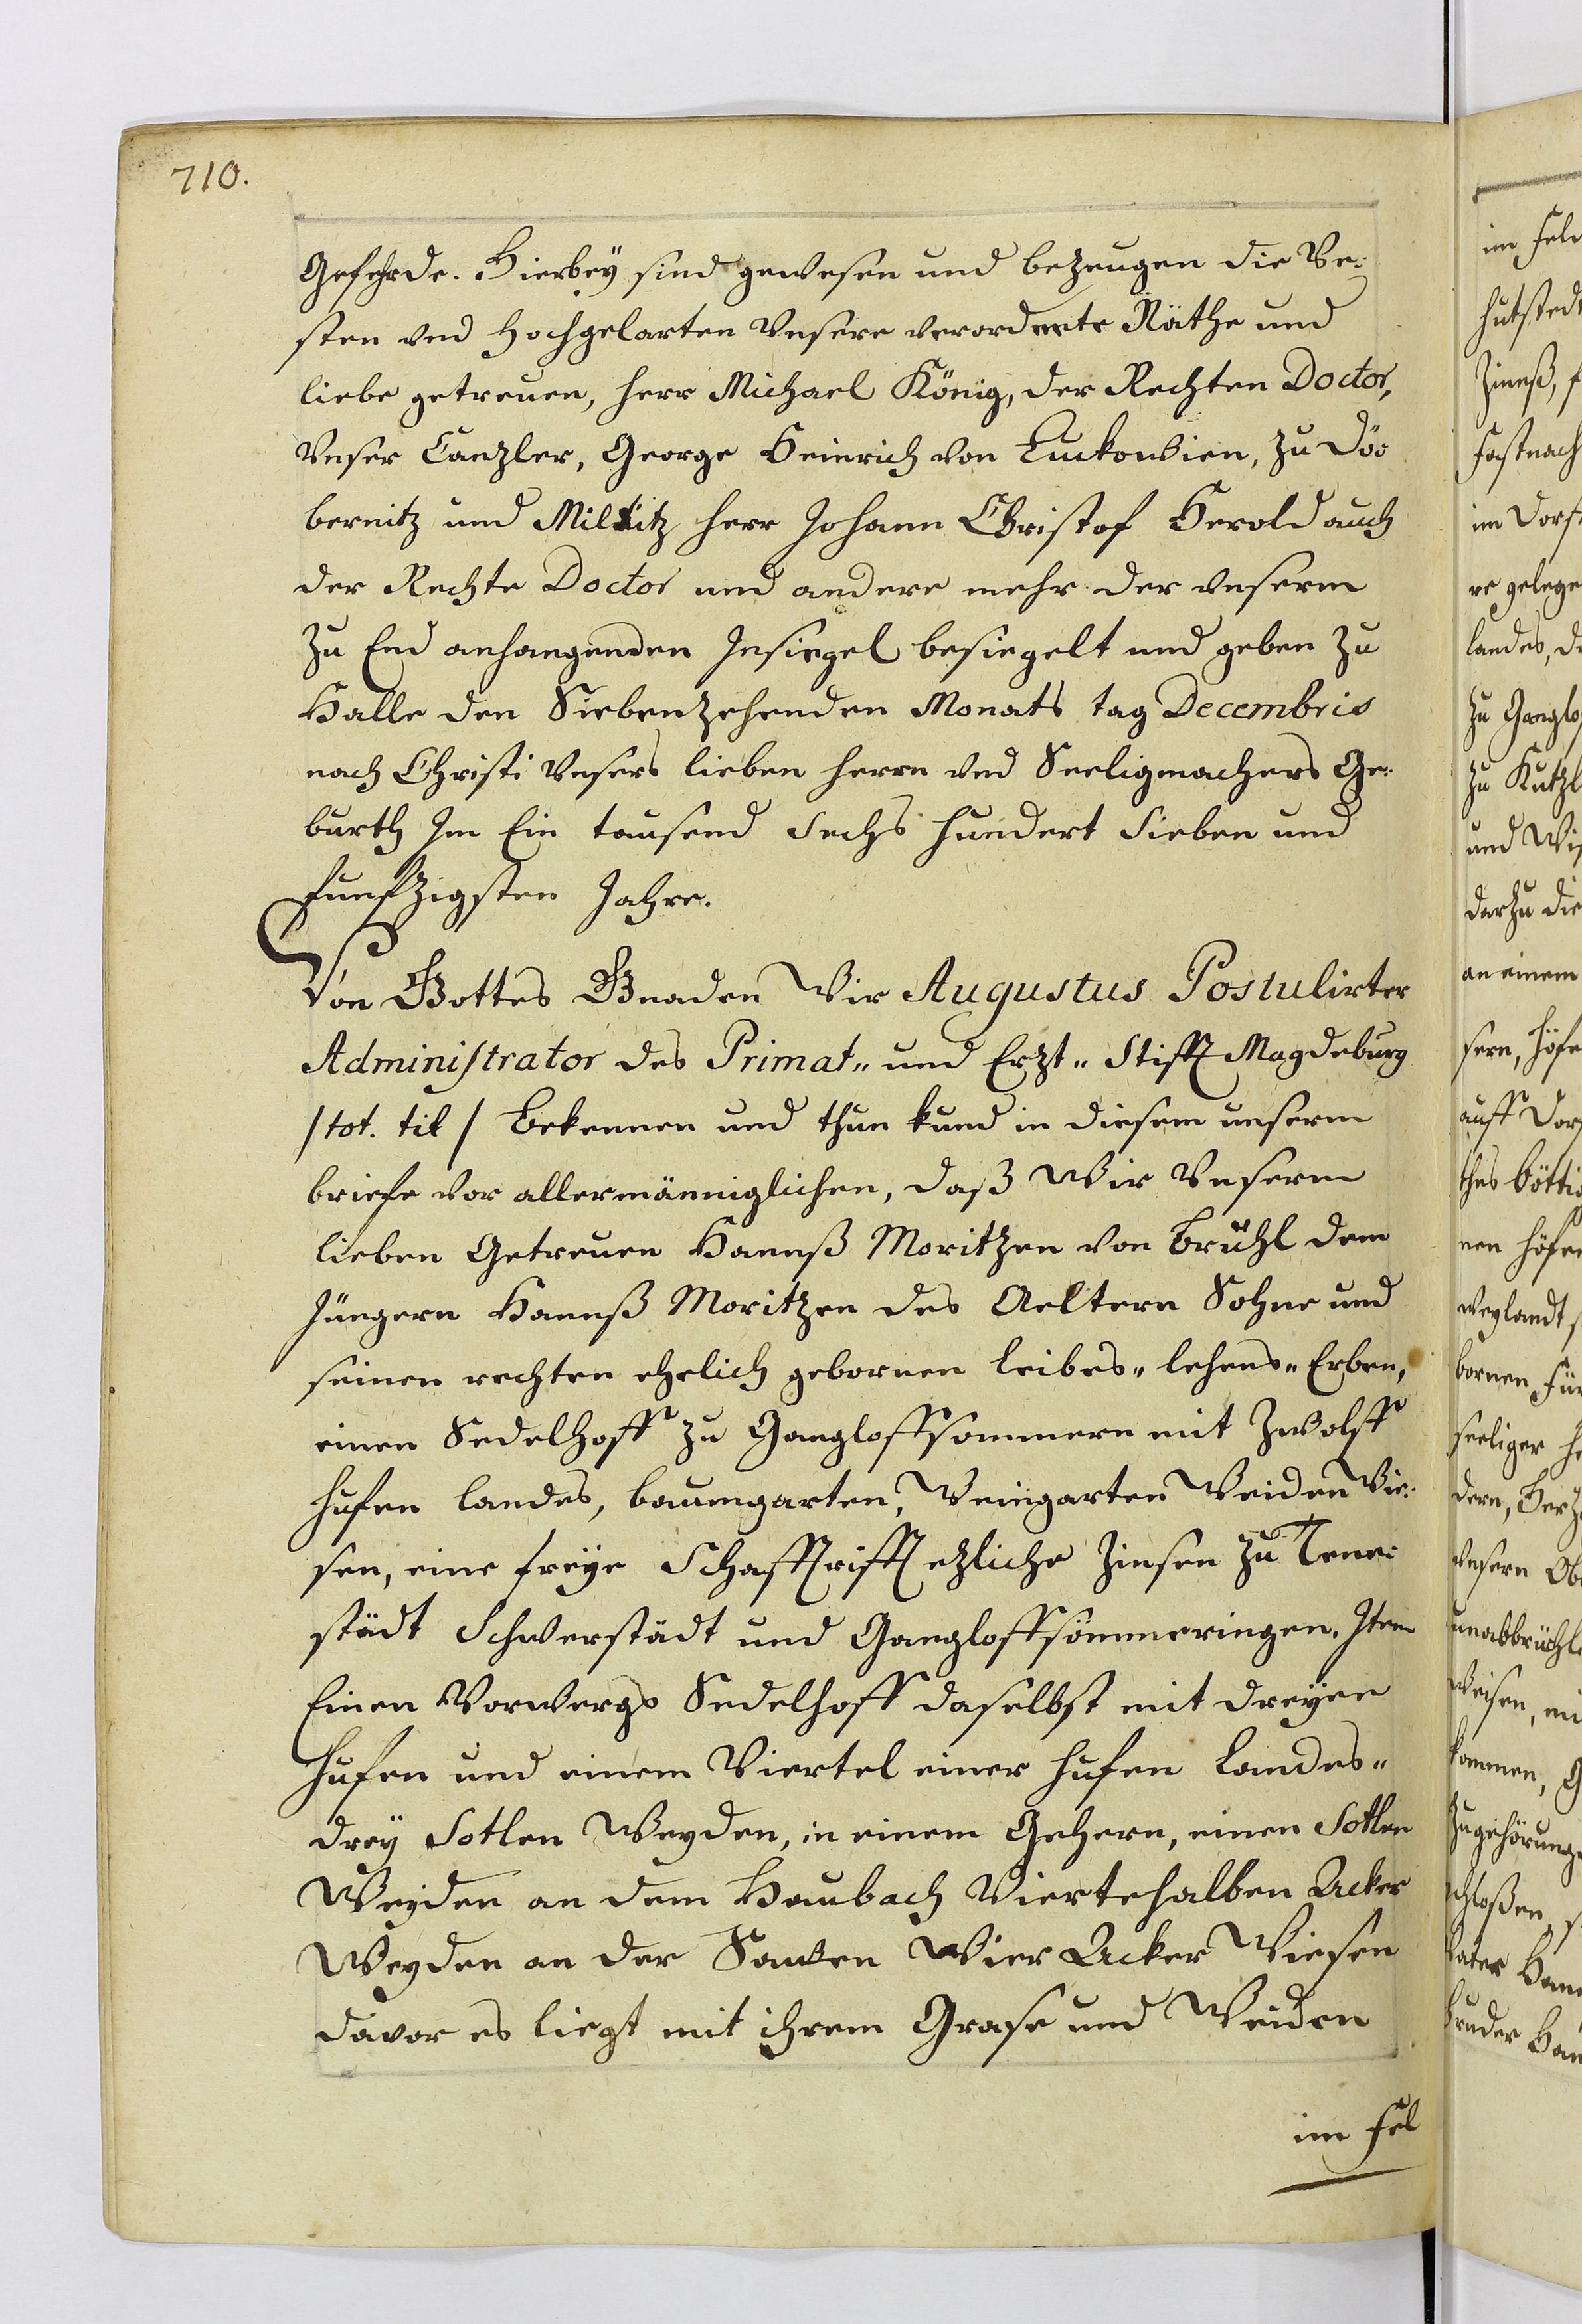 710.
Gefehrde. Hierbey sind gewesen und bezeugen die Ve-
sten vnd Hochgelarten Vnsere verordente Räthe und
liebe getreuen, Herr Michael König, der Rechten Doctor,
Vnser Canzler, George Heinrich von Luckowien, zu Dö-
bernitz und Miltitz Herr Johann Christof Herold auch
der Rechte Doctor und andere mehr der vnserm
zu End anhangenden Insiegel besiegelt und geben zu
Halle den Siebenzehenden Monats tag Decembris
nach Christi Vnsers lieben Herrn vnd Seeligmachers Ge-
burth Im Ein tausend Sechs hundert Sieben und
funfzigsten Jahre.
Von Gottes Gnaden Wir Augustus Postulirter
Administrator des Primat- und Erzt- Stifft Magdeburg
/tot. tit/ Bekennen und thun kund in diesem unserm
briefe vor allermänniglichen, daß Wir Vnserm
lieben Getreuen Hannß Moritzen von Brühl dem
Jüngern Hannß Moritzen des Aeltern Sohne und
seinen rechten ehelich gebornen leibes- lehens- Erben,
einen Sedelhoff zu Gangloffsommern mit Zwolff
hufen landes, baumgarten, Weingarten Weiden Wie-
sen, eine freye Schafftrifft etzliche Zinsen zu Tene-
städt Schwerstädt und Gangloffsömmeringen. Item
Einen Vorwergs Sedelhoff daselbst mit dreyen
Hufen und einem Viertel einer Hufen Landes-
drey Sotlen Weyden, in einem Gehern, einen Sotlen
Weyden an dem Haubach Viertehalben Acker
Weyden an der Vier Acker Wiesen
davor es liegt mit ihrem Grase und Weiden
im Fel
im Feld
hutstedt
Zinnß,
Fastnach
im Dorf
re gelege
landes,
zu Ganglof
zu Kutzl
und Wis
darzu die
an einem
sern, höfe
auff Dorf
thes bötti
nen höfen
weylandt
bornen Für
seeliger
dern, Herz
vnsern Ob
unabbrüchl
Weisen,
kommen,
Zugehörunge
schloßen
Vater Hann
bruder Han